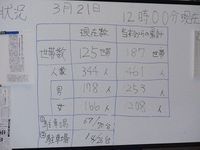 状況 3月21日
12時00分現在
現在数 当初からの累計
世帯数 125世帯 187世帯
人数 344人 461人
男 178人 253人
女 166人 208人
駐車場
駐車場